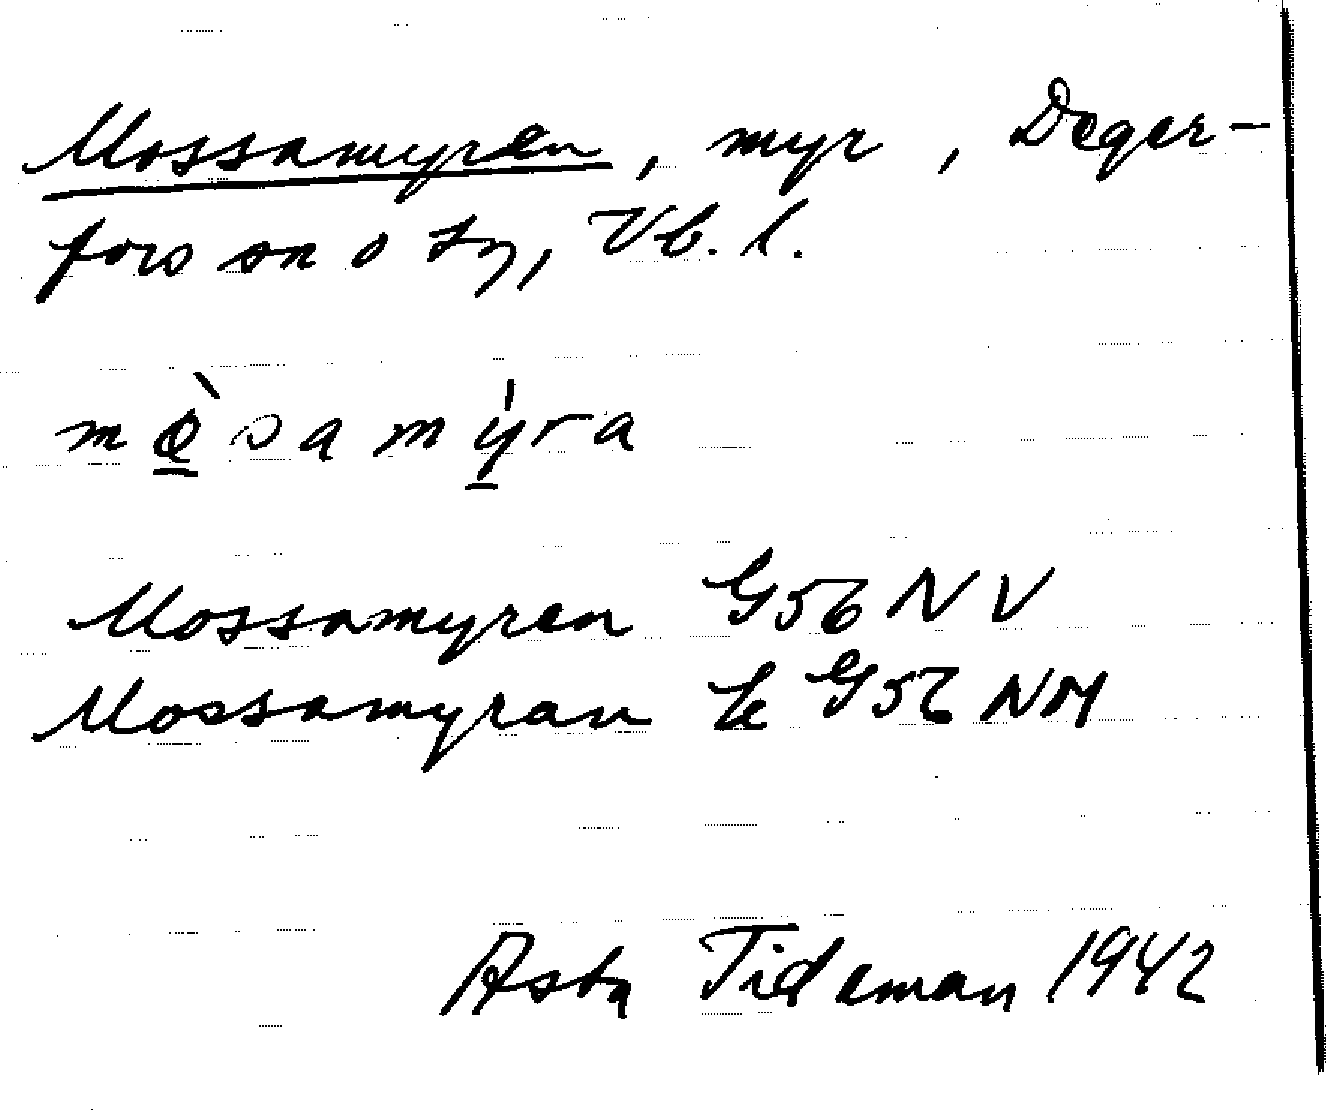 Mossamyren, myr, Deger-
fors sn o tg, Vb. l.
mò̲samý̲ra
Mossamyren G56NV
Mossamyran k G56 NM
Asta Tideman 1942